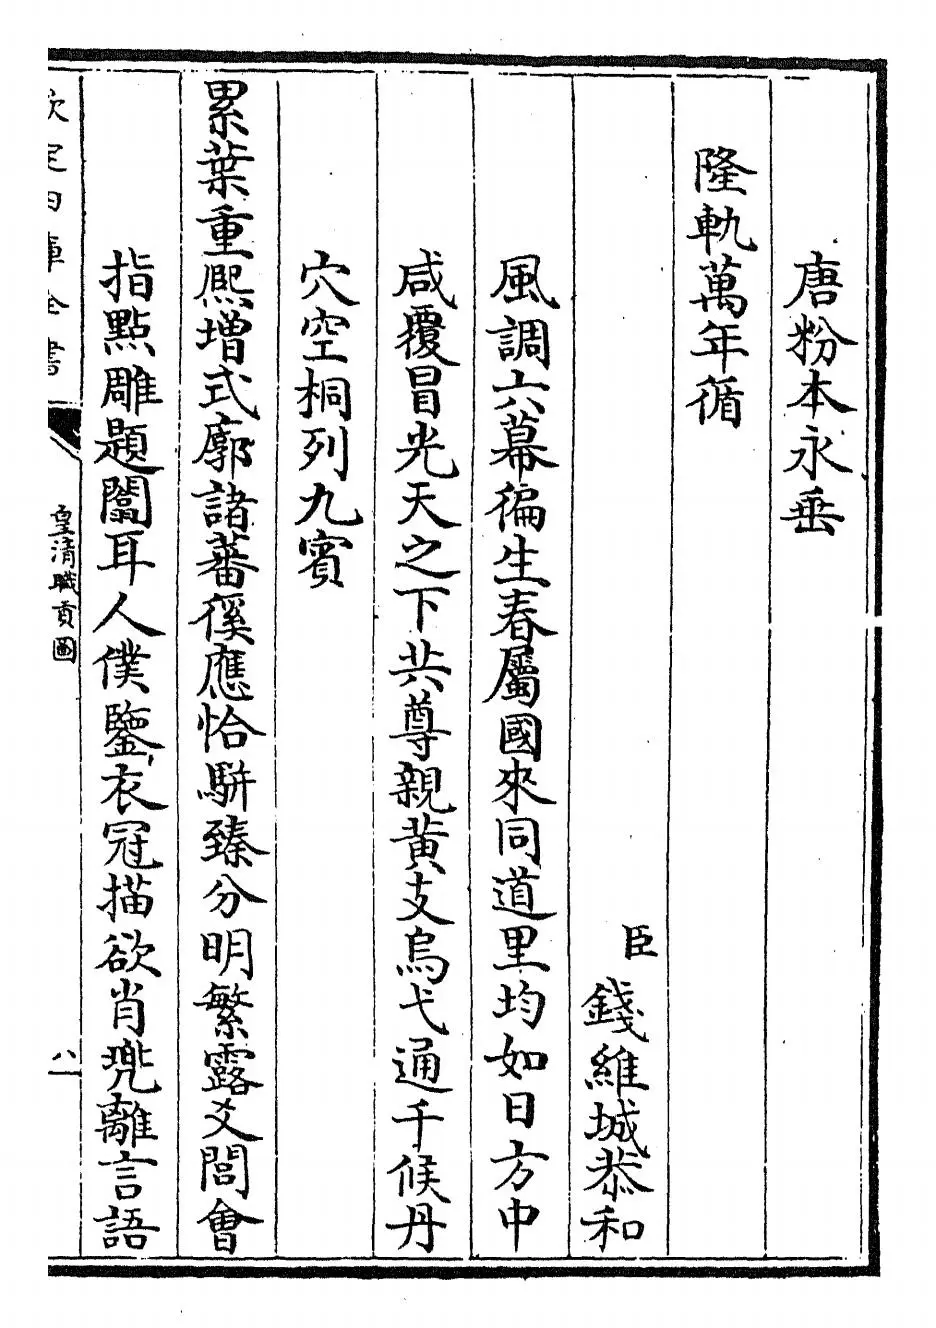 唐粉本永垂
隆軌萬年循
臣錢維城恭和
風調六幕徧生春屬國來同道里均如日方中
咸覆冒光天之下共尊親黄支烏弋通千候丹
穴空桐列九賓
累葉重熙增式廓諸蕃徯應恰駢臻分明繁露爻閭會
指點雕題闟耳人僕鑒衣冠描欲肖兠離言語
欽定四庫全書
皇清職貢圖
八